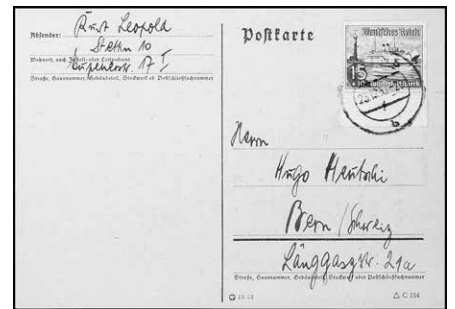 Absender: Kurt Leopold
Stettin 10
Wohnort, auch Zustell- oder Leitpostamt
17 I
Straße, Hausnummer, Gebäudeteil, Stockwerk od. Postschließfachnummer
Postkarte
Deutsches Reich
15
Herrn
Hugo Heutschi
Bern / Schweiz
Länggaßstr. 21a
Straße, Hausnummer, Gebäudeteil, Stockwerk oder Postschließfachnummer
C 154